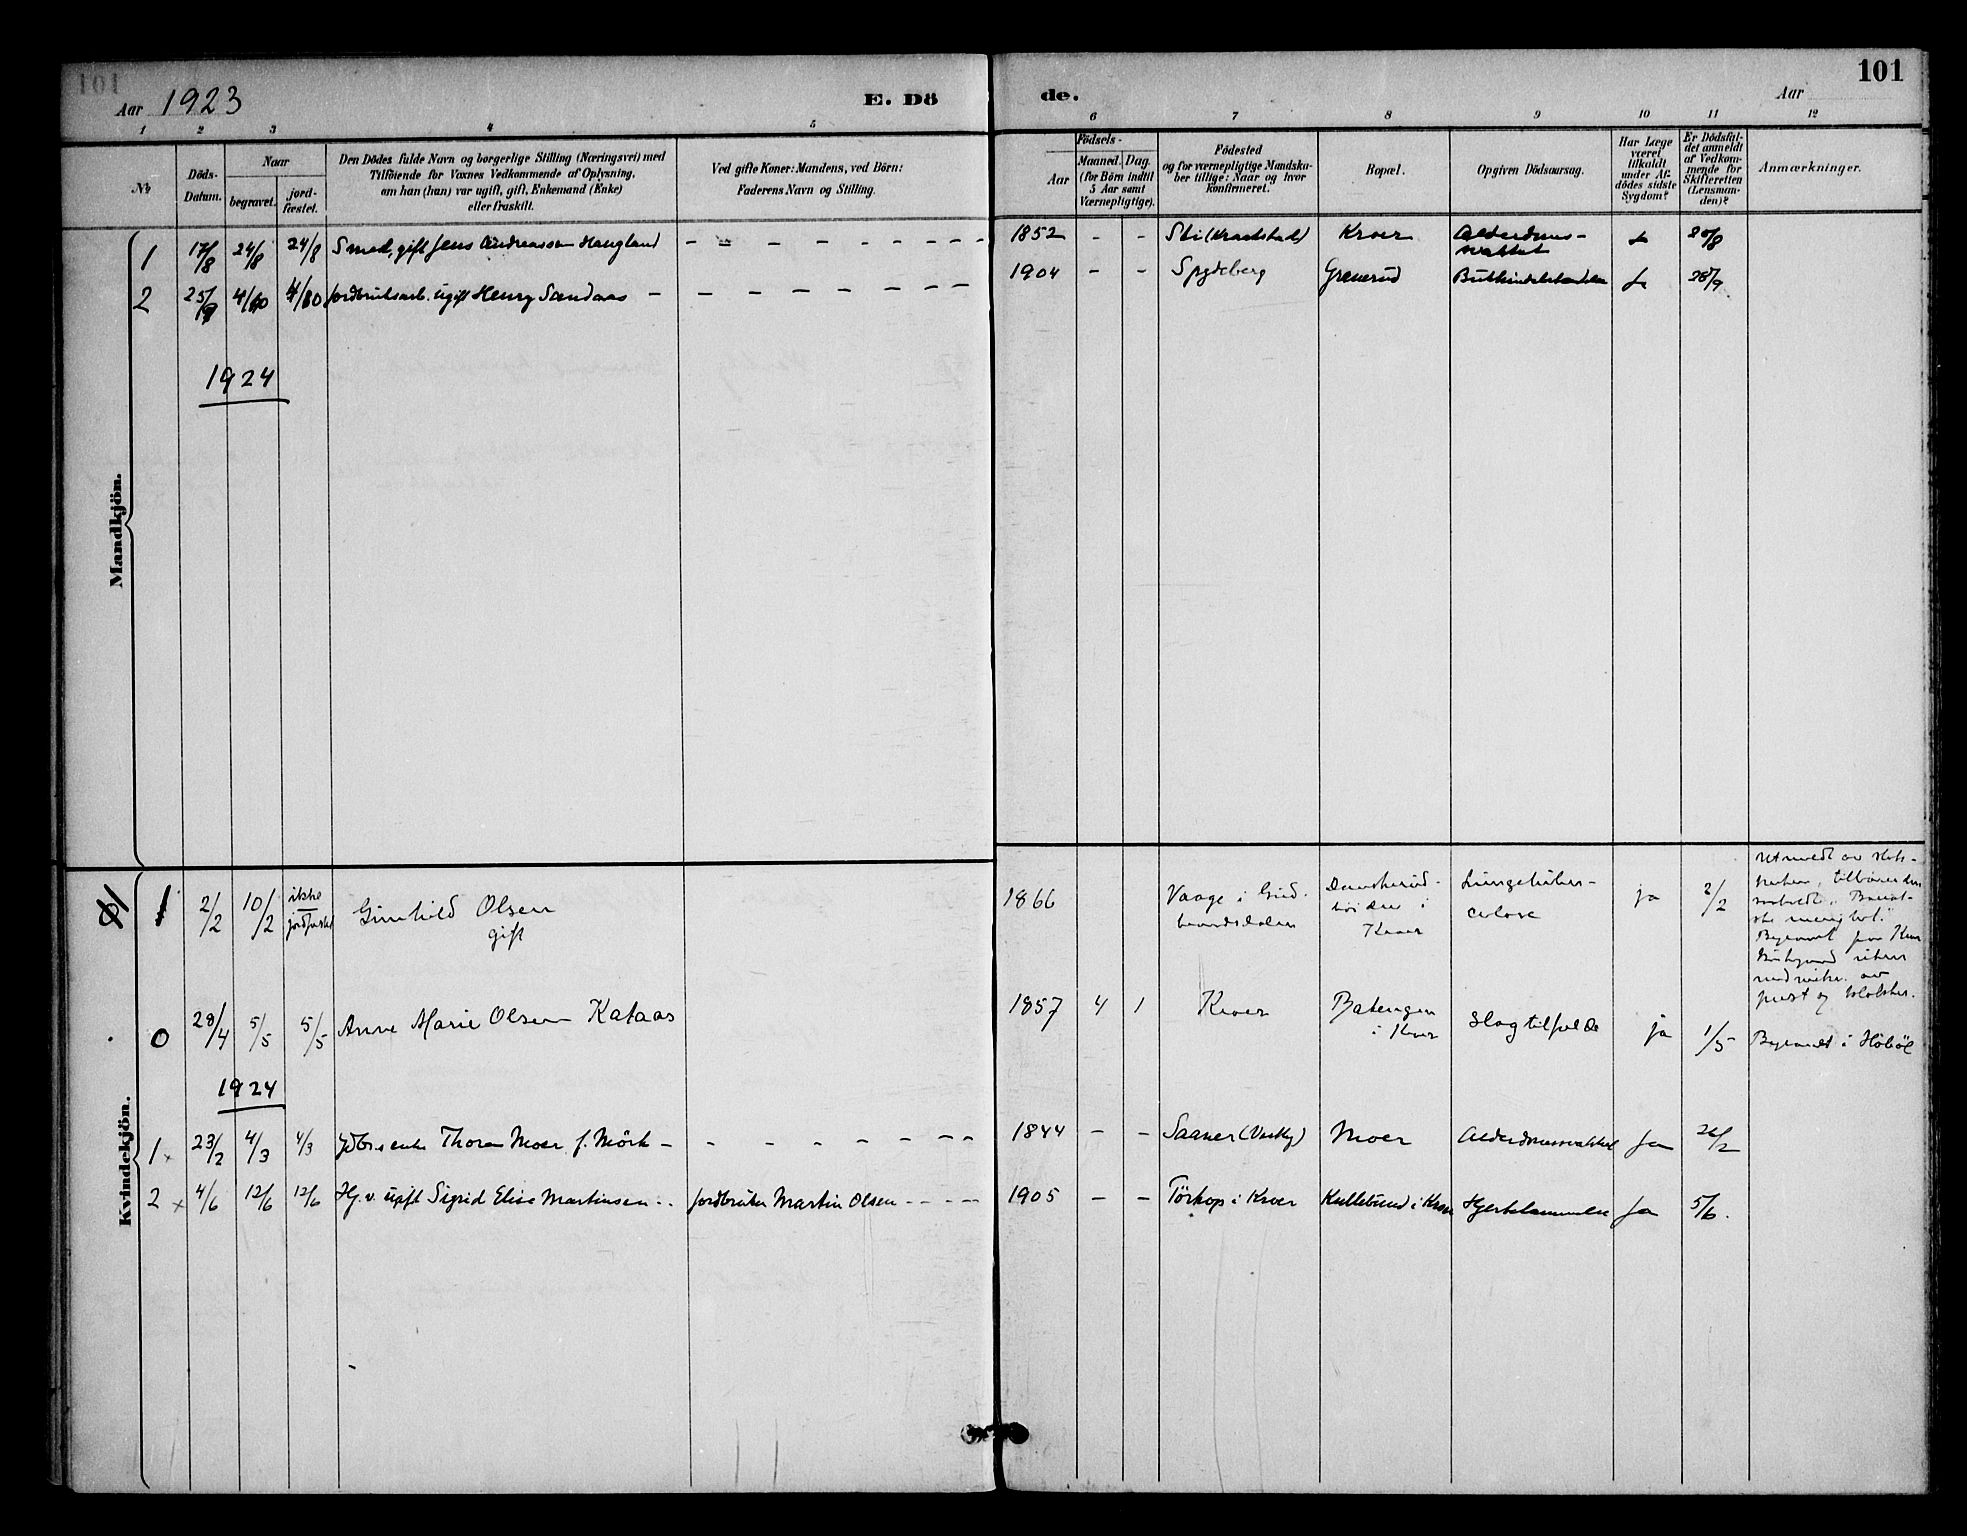 101
Aar 1923
E. Dö
de.
Aar
101
1 2 3 4 5
6 7 8 9 10 11 12
No
Döds-
Datum.
Naar
begravet.
jord-
fæstet.
Den Dödes fulde Navn og borgerlige Stilling (Næringsvei) med
Tilföiende for Voxnes Vedkommende af Oplysning,
om han (hun) var ugift, gift, Enkemand (Enke)
eller fraskilt.
Ved gifte Koner: Mandens, ved Börn:
Faderens Navn og Stilling.
Födsels-
Aar
Maaned. Dag.
(for Börn indtil
5 Aar samt
Værnepligtige).
Födested
og for værnepligtige Mandska-
ber tillige: Naar og hvor
Konfirmeret.
Bopæl.
Opgiven Dödsaarsag.
Har Læge
været
tilkaldt
under Af-
dödes sidste
Sygdom?
Er Dödsfal-
det anmeldt
af Vedkom-
mende for
Skifteretten
(Lensman-
den)?
Anmærkninger.
Mandkjön.
1 17/8 24/8 24/8 Smed, gift Jens Andreassen Haugland - - - - - - - - - 1852 - - Ski (Kraakstad) Kroer Alderdoms-
Ja 20/8
2 25/9 4/10 4/10 Jordbruksarb. ugift Henry Sandaas - - - - - - - - 1904 - - Spydeberg Grenerud Ja 28/9
1924
Kvindekjön.
1 2/2 10/2 ikke
jordfæstet
Gunhild Olsen
gift
1866 Vaage i Gud-
brandsdalen
i
Kroer
ja 2/2
tilhørende
Kroer
av
prest og klokker.
0 28/4 5/5 5/5 Anne Marie Olsen Kataas 1857 4 1 Kroer Bakengen
i Kroer
Slagtilfelde ja 1/5 Begravet i Hobøl
1924
1 x 23/2 4/3 4/3 enke Thora Moer f. Mörk - - - - - - - - 1844 - - Saaner (Vestby) Moer Ja 26/2
2 x 4/6 12/6 12/6 Hj. v. ugift Sigrid Elise Martinsen.. Jordbruker Martin Olsen - - - - 1905 - - Törkop i Kroer Kullebund i Kroer Hjertelammelse Ja 5/6.